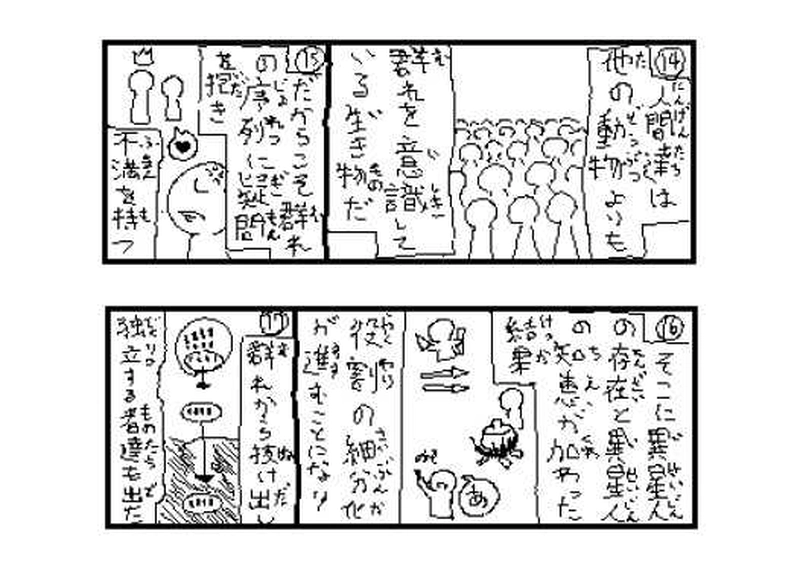 ⑭
人間達は
他の動物よりも
群れを意識して
いる生き物だ
⑮
だからこそ群れ
の序列に疑問
を抱き
不満を持つ
⑯
そこに異星人
の存在と異星人
の知恵が加わった
結果
役割の細分化
が進むことになり
あ
⑰
群れから抜け出し
独立する者達も出た